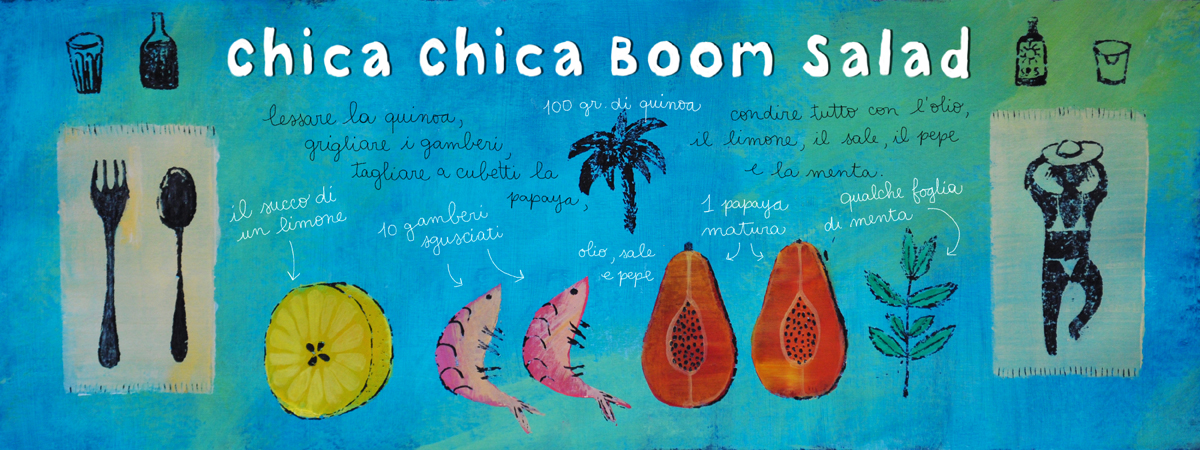 Chica Chica Boom Salad
lessare la quinoa,
grigliare i gamberi,
tagliare a cubetti la
papaya,
100 gr. di quinoa
condire tutto con l'olio,
il limone, il sale, il pepe
e la menta.
il succo di
un limone
10 gamberi
sgusciati
olio, sale
e pepe
1 papaya
matura
qualche foglia
di menta